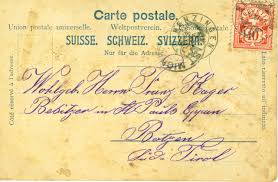 Carte postale.
Union postale universelle. Weltpostverein. Unione postale universale.
SUISSE. SCHWEIZ. SVIZZERA.
Nur für die Adresse.
Côté réservé à l'adresse.
Wohlgeb. Herrn Franz Hager
Besitzer in St. Pauls Eppan
Botzen
Süd-Tirol
10